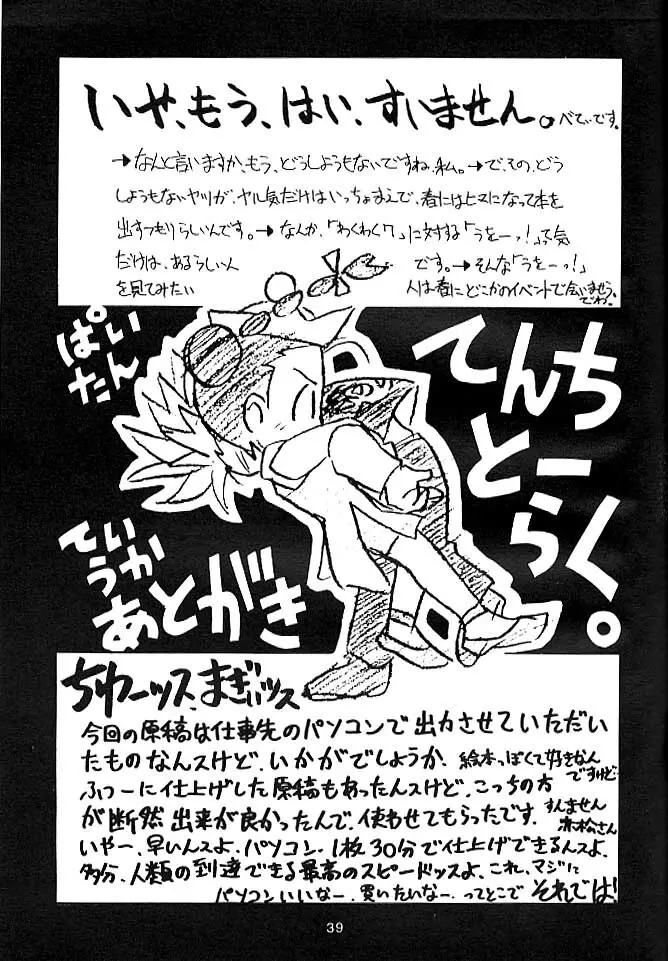 いや、もう、はい、すいません。べてぃです。
→なんと言いますか、もう、どうしようもないですね、私。→で、その、どう
しようもないヤツが、ヤル気だけはいっちょまえで、春にはヒマになって本を
出すつもりらしいんです。→なんか、「わくわく7」に対する「うをーっ!」って気
だけは、あるらしい人 です。→そんな「うをーっ!」
を見てみたい 人は春にどこかのイベントで会いませう。
でわ。
ぱい
たん
てんち
とーく
らく。
ていうか
あとがき
ちわーッス、まぎぃッス
今回の原稿は仕事先のパソコンで出力させていただい
たものなんスけど、いかがでしょうか、絵本っぽくて好きなん
ですけど…
ふつーに仕上げした原稿もあったんスけど、こっちの方
が断然出来が良かったんで、使わせてもらったです。すんません
赤松さん
いやー、早いんスよ、パソコン、1枚30分で仕上げできるんスよ、
多分、人類の到達できる最高のスピードッスよ、これ、マジに
パソコンいいなー、買いたいなー、ってとこで それでは!
39